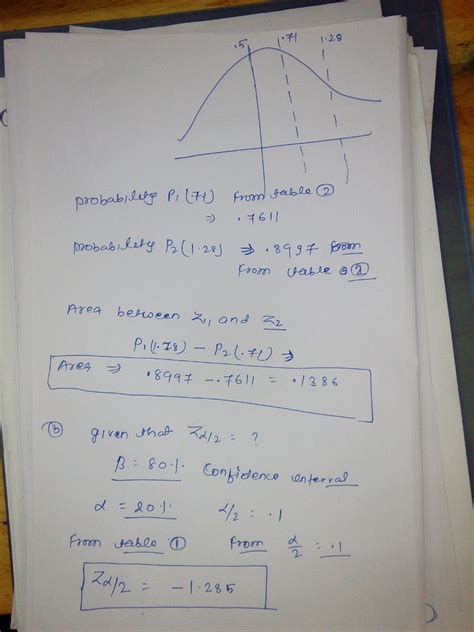 .5 .71 1.28
probability P₁(.71) From table ②
⇒ .7611
probability P₂(1.28) ⇒ .8997 from
From table ②
Area between Z₁ and Z₂
P₁(1.28) - P₂(.71) ⇒
Area ⇒ .8997 - .7611 = .1386
(b) given that Zα/2 = ?
β = 80% Confidence interval
α = 20% α/2 = .1
From table ① From α/2 = .1
Zα/2 = -1.285